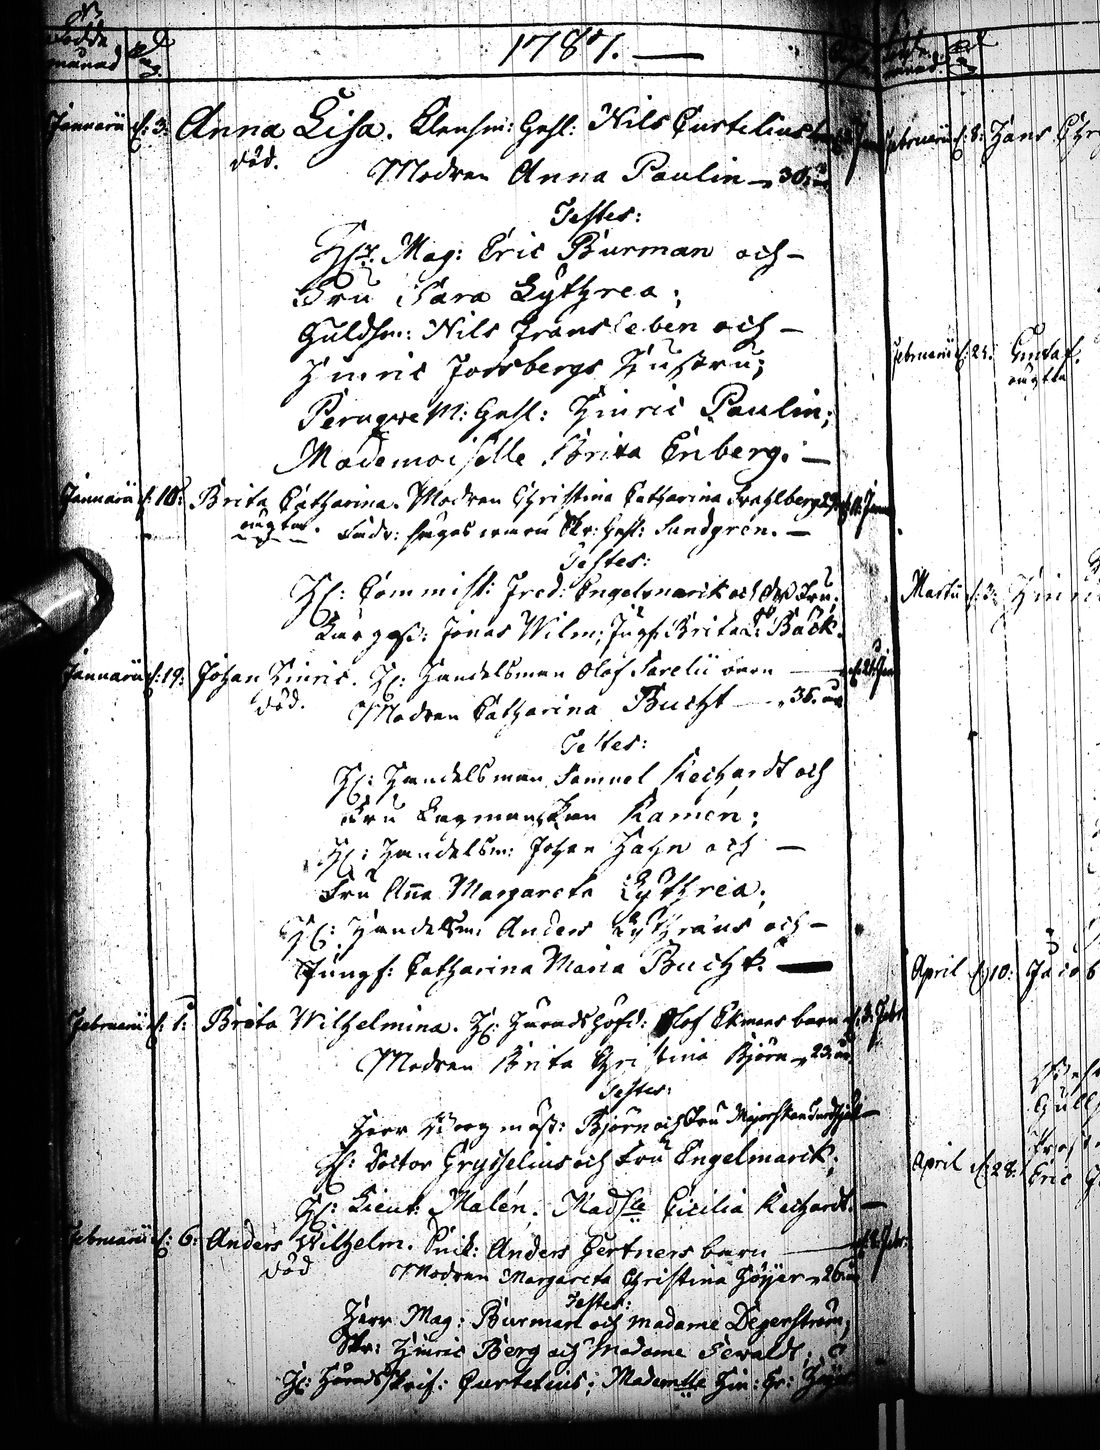 Födde
månad
1787.
Januarii d: 3: Anna Lisa. Klensm: Gesl: Nils Curtelius
död. Modren Anna Paulin 30. år
Testes:
Hr. Mag: Eric Burman och
Fru Sara Lythrea;
Guldsm: Nils Fransleben och
Hinric Forsbergs Hustru;
Peruqve M: Gesl: Hinric Paulin;
Mademoiselle Brita Enberg.
Januarii d: 10: Brita Catharina. Modren Christina Catharina
oägta. Fadr: säges wara Skr: Gesl: Sundgrén.
Testes:
H: Commiss: Fred: Engelmarck och dess Fru.
Jonas Wilm; Jugf: Brita L: Bäck.
Januarii d: 19: Johan Hinric. H: Handelsman Olof Sarelii barn
död. Modren Catharina Bucht 35. år
Testes:
H: Handelsman Samuel Rechardt och
Fru Lagmanskan Ramén;
H: Handelsm: Johan Hahn och
Fru Aña Margareta Lythrea;
H: Handelsm: Anders Lythræus och
Jungf: Catharina Maria Bucht.
Februarii d: 1: Brita Wilhelmina. H: Häradshöfd: Olof Ekmans barn
Modren Brita Christina Björn 23. år
Testes:
Herr Borgmäst: Björn och Fru Majorskan
H: Doctor Grysselius och Fru Engelmarck;
H: Lieut: Malén. Madslle Cicilia Rechardt.
Februarii d: 6: Anders Wilhelm. Snik: Anders Gertners barn
död Modren Margareta Christina Höijer 26. år
Testes:
Herr Mag: Burman och Madame Degerström;
Skr: Hinric Berg och Madame Sewaldt;
H: Häradsskrif: Curtelius; Mademslle
Februarii d: 8: Hans
Februarii d: 25: Gustaf.
oägta
Martii d: 3: Hinric
April d: 10: Jacob
April d: 28: Eric